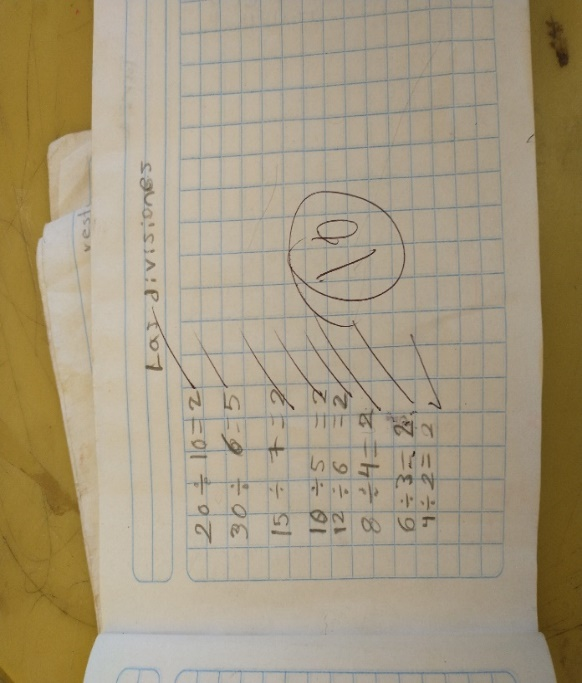 Las divisiones
20 ÷ 10 = 2
30 ÷ 6 = 5
15 ÷ 7 = 2
10 ÷ 5 = 2
12 ÷ 6 = 2
8 ÷ 4 = 2
6 ÷ 3 = 2
4 ÷ 2 = 2
10